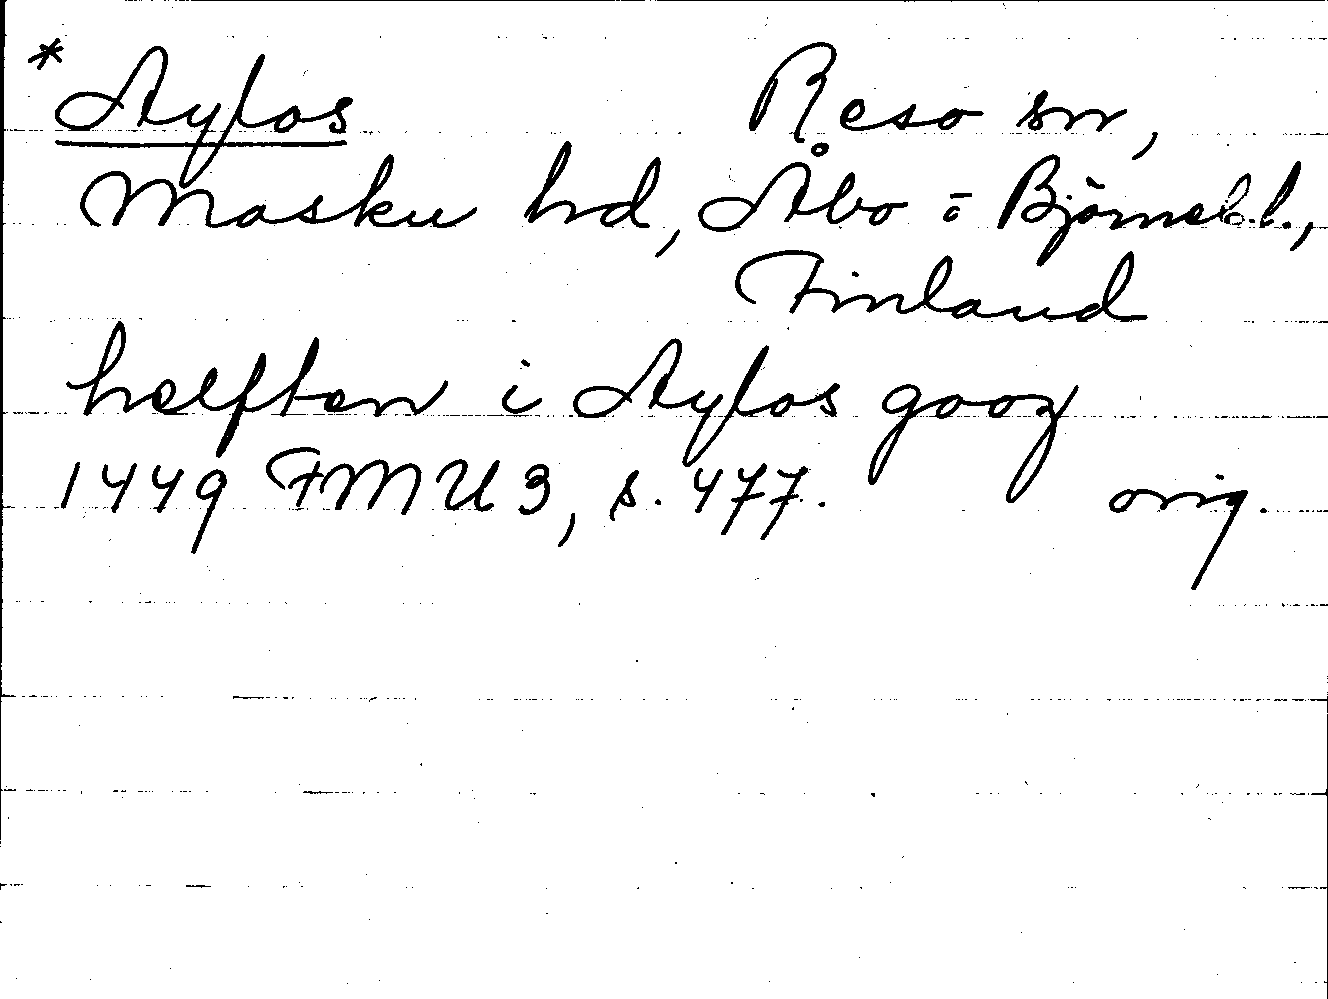 * Aylos Reso sn,
Masku hd, Åbo o Björneb.l.,
Finland
helften i Aylos gooz
1449 FMU 3, s. 477. orig.